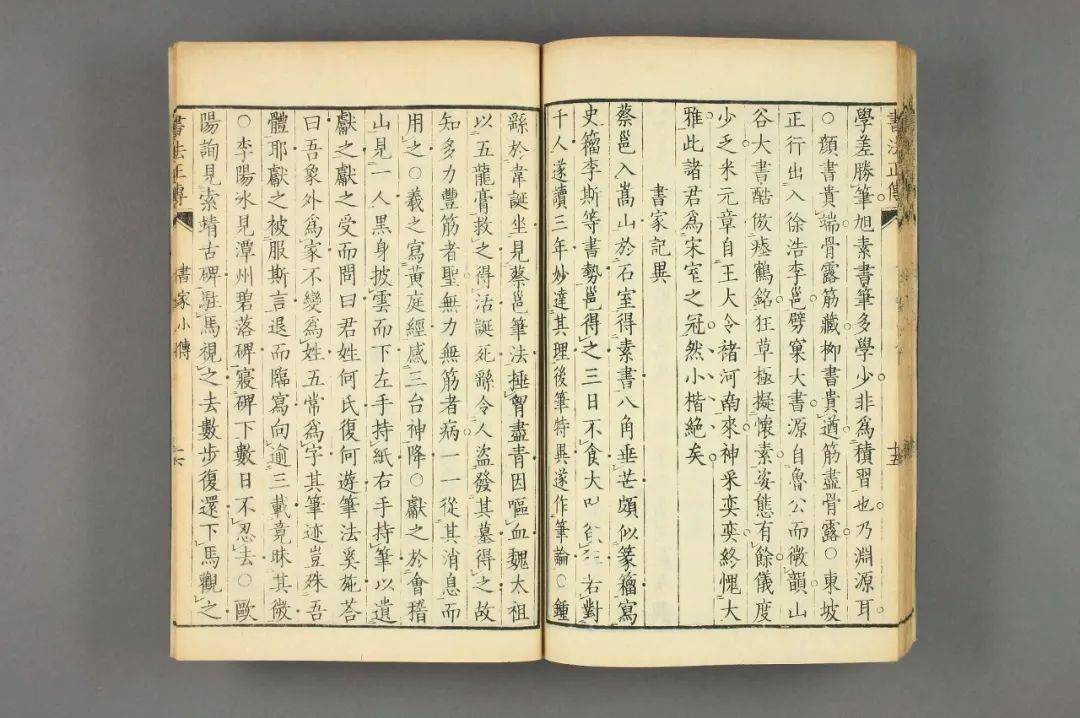 書法正傳
十五
學差勝筆旭素書筆多學少非爲積習也乃淵源耳
○顔書貴端骨露筋藏柳書貴遒筋盡骨露○東坡
正行出入徐浩李邕劈窠大書源自魯公而微韻山
谷大書酷倣瘞鶴銘狂草極擬懷素姿態有餘儀度
少乏米元章自王大令褚河南來神采奕奕終愧大
雅此諸君爲宋室之冠然小楷絶矣
書家記異
蔡邕入嵩山於石室得素書八角垂芒頗似篆籀寫
史籀李斯等書勢邕得之三日不食大叫 若對
千人遂讀三年妙達其理後筆特異遂作筆論○鍾
繇於韋誕坐見蔡邕筆法搥胷盡青因嘔血魏太祖
以五龍膏救之得活誕死繇令人盜發其墓得之故
知多力豐筋者聖無力無筋者病一一從其消息而
用之○羲之寫黄庭經感三台神降○獻之於會稽
山見一人黑身披雲而下左手持紙右手持筆以遺
獻之獻之受而問曰君姓何氏復何遊筆法奚施荅
曰吾象外爲家不變爲姓五常爲字其筆迹豈殊吾
體耶獻之被服斯言退而臨寫向逾三載竟昧其微
○李陽氷見潭州碧落碑寢碑下數日不忍去○歐
陽詢見索靖古碑駐馬視之去數步復還下馬觀之
書法正傳
書家小傳
十六